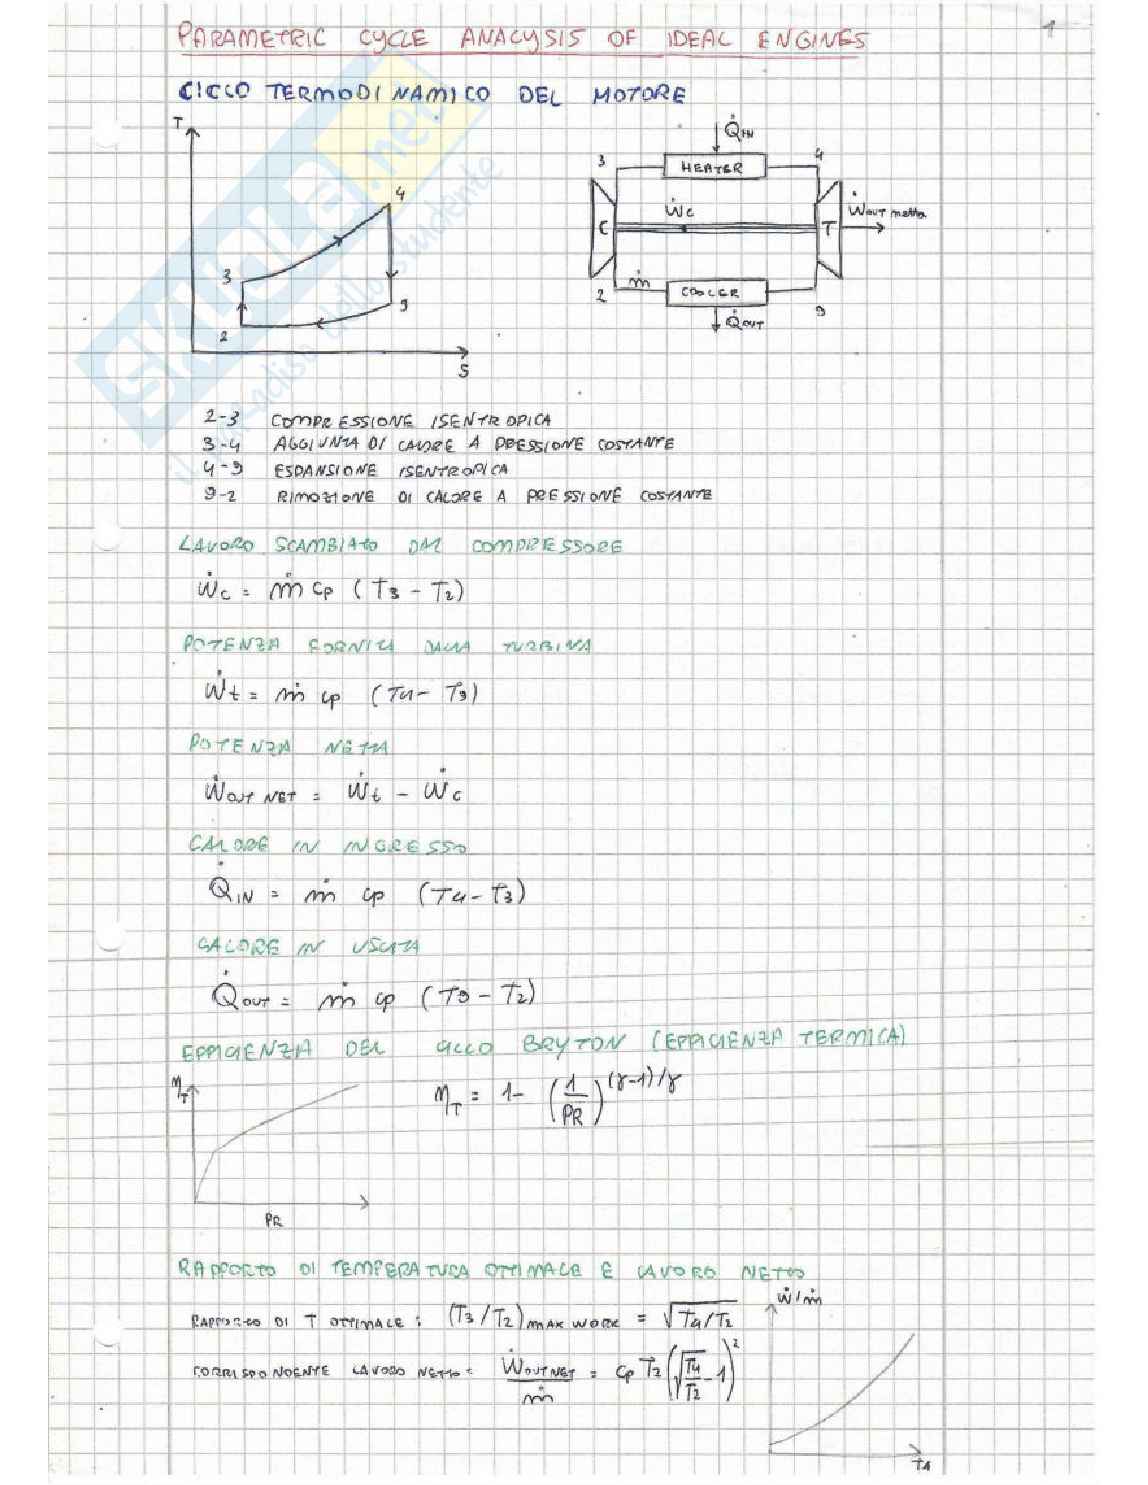 PARAMETRIC CYCLE ANALYSIS OF IDEAL ENGINES
1
CICLO TERMODINAMICO DEL MOTORE
T
4
3
9
2
S
Q̇IN
3
HEATER
4
Ẇc
ẆOUT netta
C
T
ṁ
2
COOLER
9
Q̇OUT
SKUOLA.net
il paradiso dello studente
2-3 COMPRESSIONE ISENTROPICA
3-4 AGGIUNTA DI CALORE A PRESSIONE COSTANTE
4-9 ESPANSIONE ISENTROPICA
9-2 RIMOZIONE DI CALORE A PRESSIONE COSTANTE
LAVORO SCAMBIATO DAL COMPRESSORE
Ẇc = ṁ cp (T3 - T2)
POTENZA FORNITA DALLA TURBINA
Ẇt = ṁ cp (T4 - T9)
POTENZA NETTA
ẆOUT NET = Ẇt - Ẇc
CALORE IN INGRESSO
Q̇IN = ṁ cp (T4 - T3)
CALORE IN USCITA
Q̇OUT = ṁ cp (T9 - T2)
EFFICIENZA DEL CICLO BRYTON (EFFICIENZA TERMICA)
ηT
ηT = 1 - (1/PR)^(γ-1)/γ
PR
RAPPORTO DI TEMPERATURA OTTIMALE E LAVORO NETTO
Ẇ/ṁ
RAPPORTO DI T OTTIMALE: (T3/T2)MAX WORK = √T4/T2
CORRISPONDENTE LAVORO NETTO: ẆOUT NET/ṁ = cp T2 (√T4/T2 - 1)²
T4